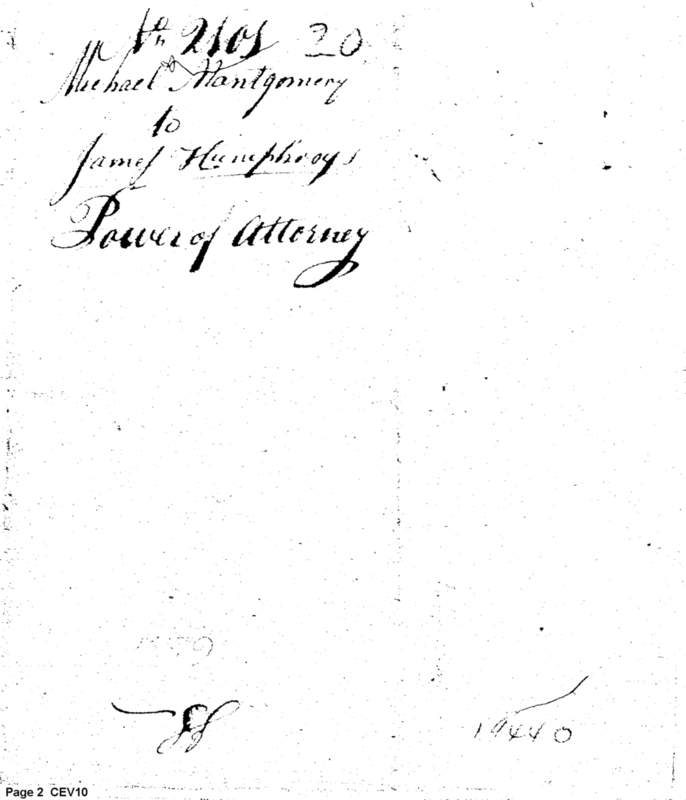 No 2101 20
Michael Mantgomery
to
James Humphreys
Power of Attorney
19440
Page 2 CEV10